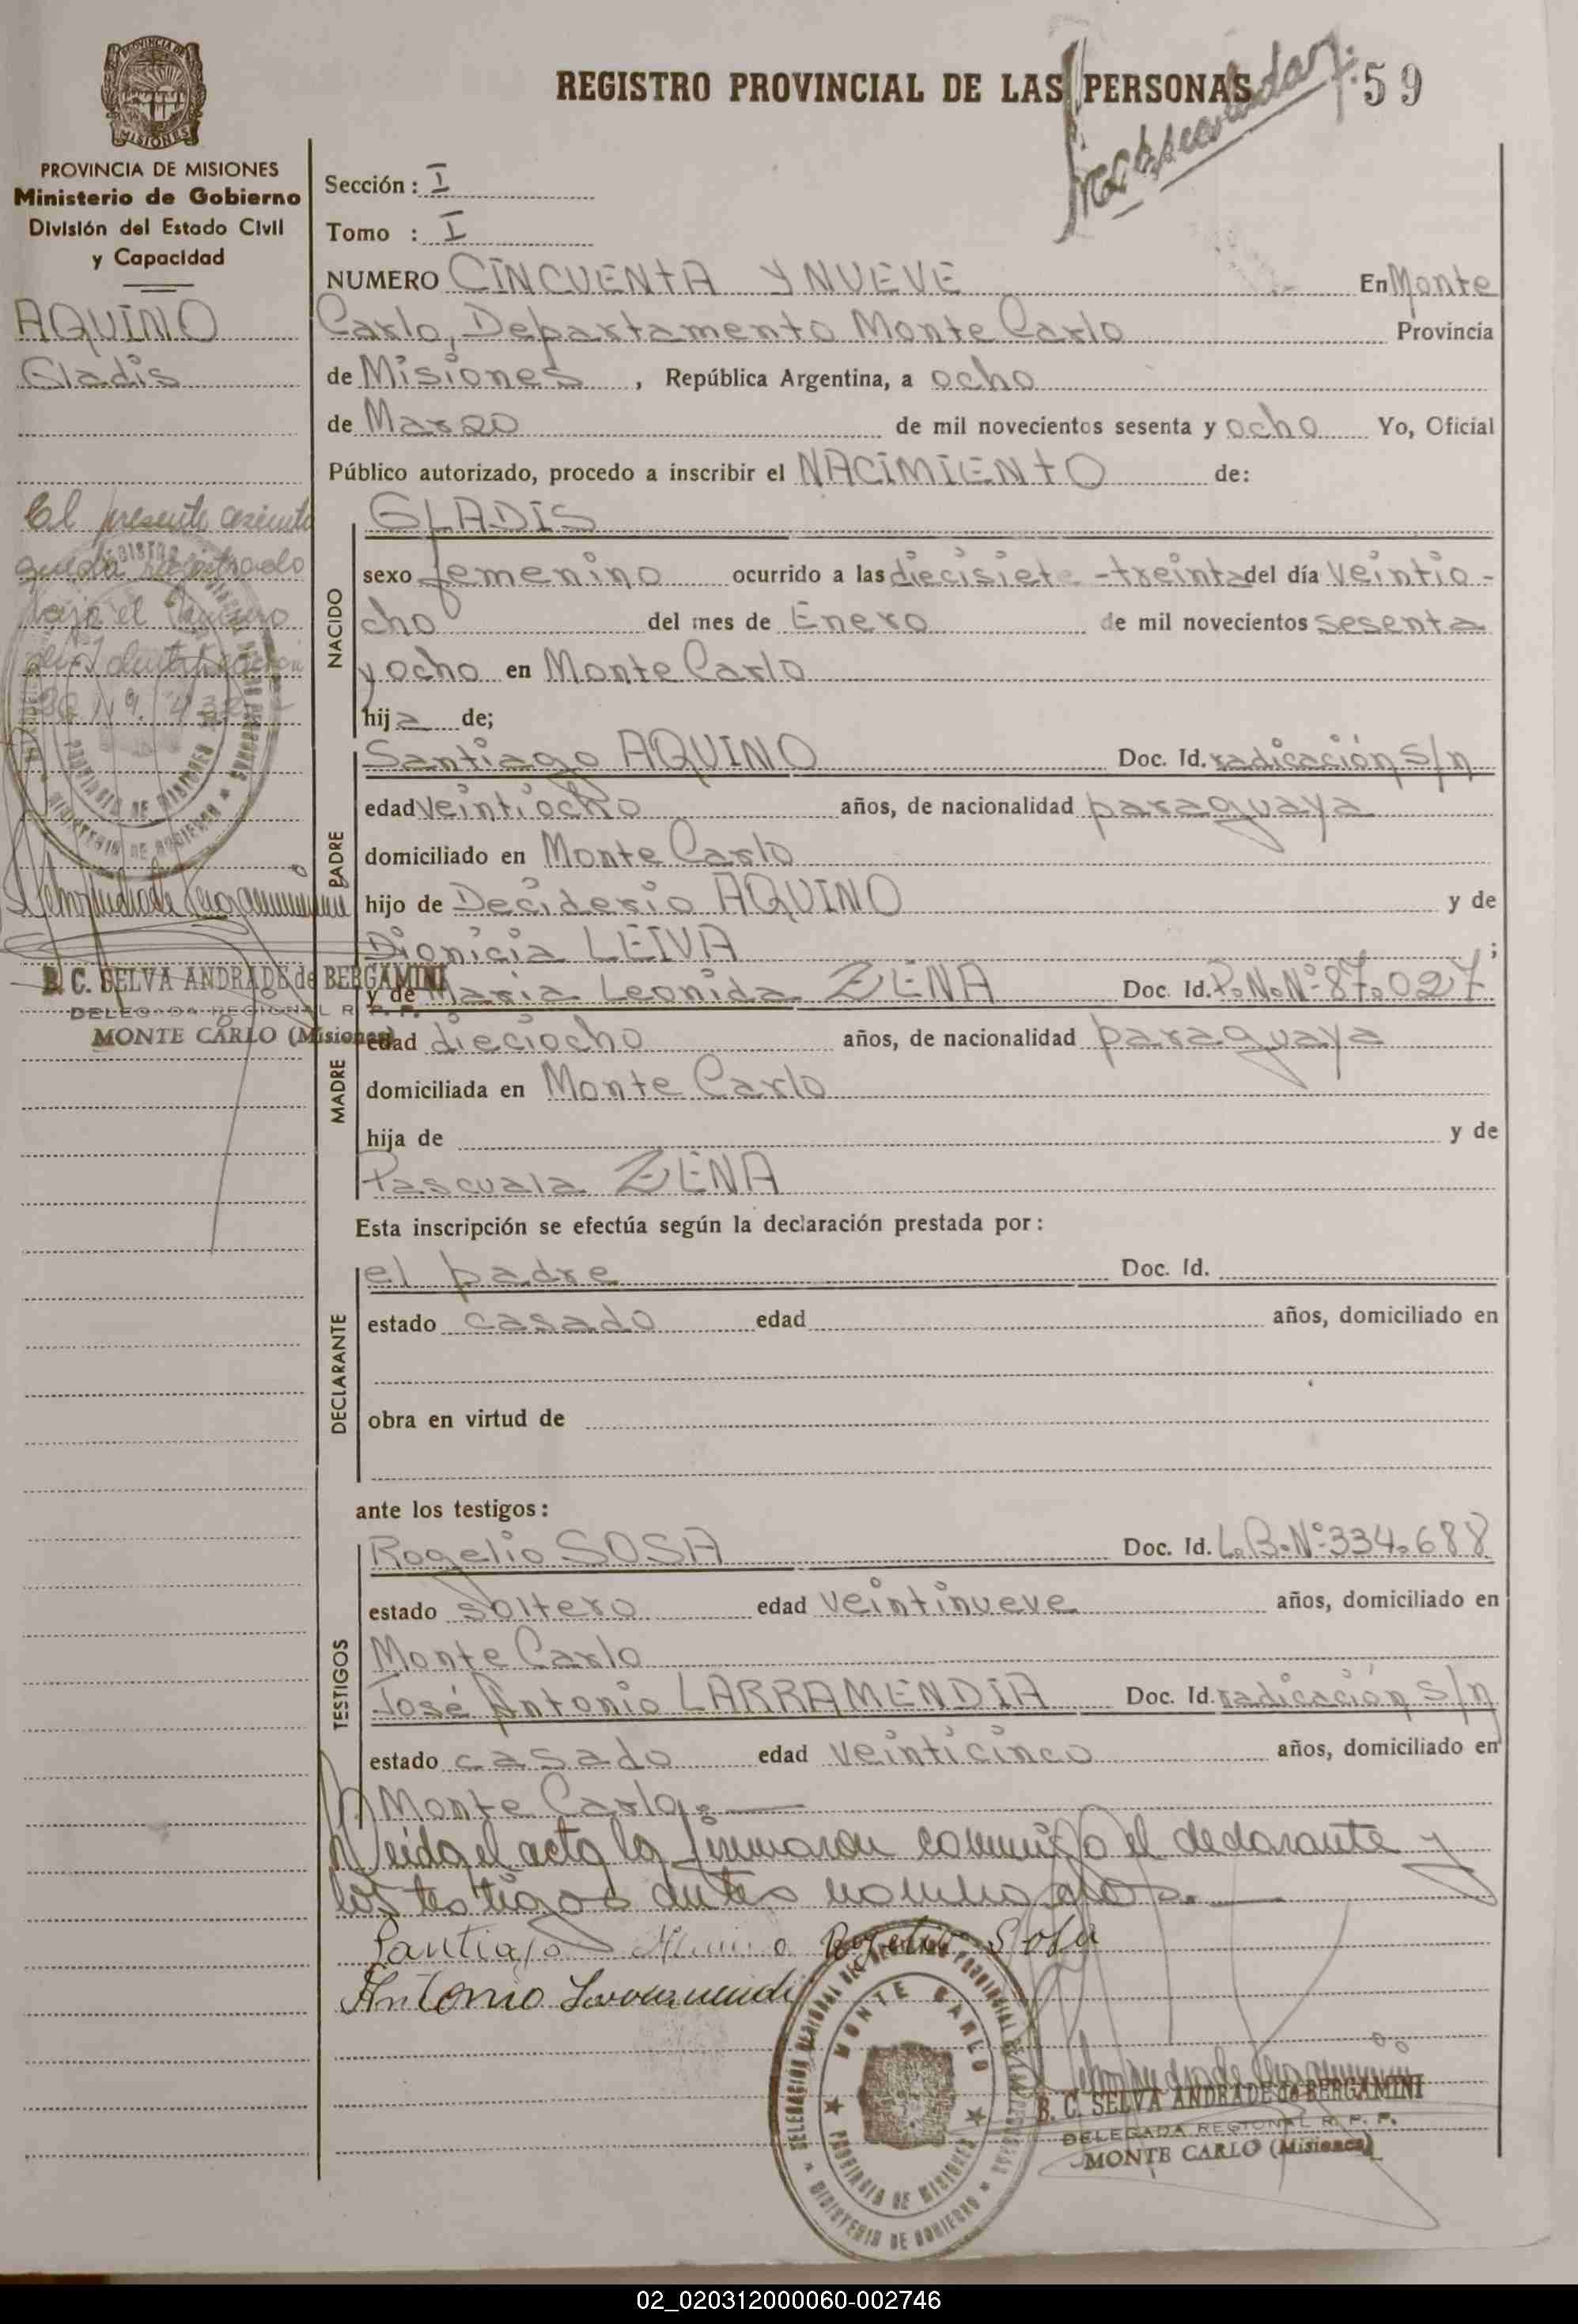 PROVINCIA DE MISIONES
Ministerio de Gobierno
División del Estado Civil
y Capacidad
AQUINO
Gladis
El presente
queda registrado
bajo el Número
REGISTRO PROVINCIAL DE LAS PERSONAS
59
Sección: I
Tomo : I
NUMERO CINCUENTA Y NUEVE En Monte
Carlo, Departamento Monte Carlo Provincia
de Misiones, República Argentina, a ocho
de Marzo de mil novecientos sesenta y ocho Yo, Oficial
Público autorizado, procedo a inscribir el NACIMIENTO de:
NACIDO
GLADIS
sexo femenino ocurrido a las diecisiete - treinta del día veintio-
cho del mes de Enero de mil novecientos sesenta
y ocho en Monte Carlo
hija de;
PADRE
Santiago AQUINO Doc. Id. radicación s/n
edad veintiocho años, de nacionalidad paraguaya
domiciliado en Monte Carlo
hijo de Deciderio AQUINO y de
Dionicia LEIVA ;
B. C. SELVA ANDRADE de BERGAMINI
DELEGADA REGIONAL R. P. P.
MONTE CARLO (Misiones)
MADRE
y de Maria Leonida ZENA Doc. Id. P.N.Nº87.027
edad dieciocho años, de nacionalidad paraguaya
domiciliada en Monte Carlo
hija de y de
Pascuala ZENA
Esta inscripción se efectúa según la declaración prestada por:
DECLARANTE
el padre Doc. Id.
estado casado edad años, domiciliado en
obra en virtud de
ante los testigos:
TESTIGOS
Rogelio SOSA Doc. Id. L.B.Nº334.688
estado soltero edad veintinueve años, domiciliado en
Monte Carlo
José Antonio LARRAMENDIA Doc. Id. radicación s/n
estado casado edad veinticinco años, domiciliado en
Monte Carlo.
Leida el acta la firmaron conmigo el declarante y
los testigos antes nombrados.
Santiago Aquino Rogelio Sosa
Antonio Larramendi
MONTE CARLO
PROVINCIA DE MISIONES
MINISTERIO DE GOBIERNO
B. C. SELVA ANDRADE de BERGAMINI
DELEGADA REGIONAL R. P. P.
MONTE CARLO (Misiones)
02_020312000060-002746